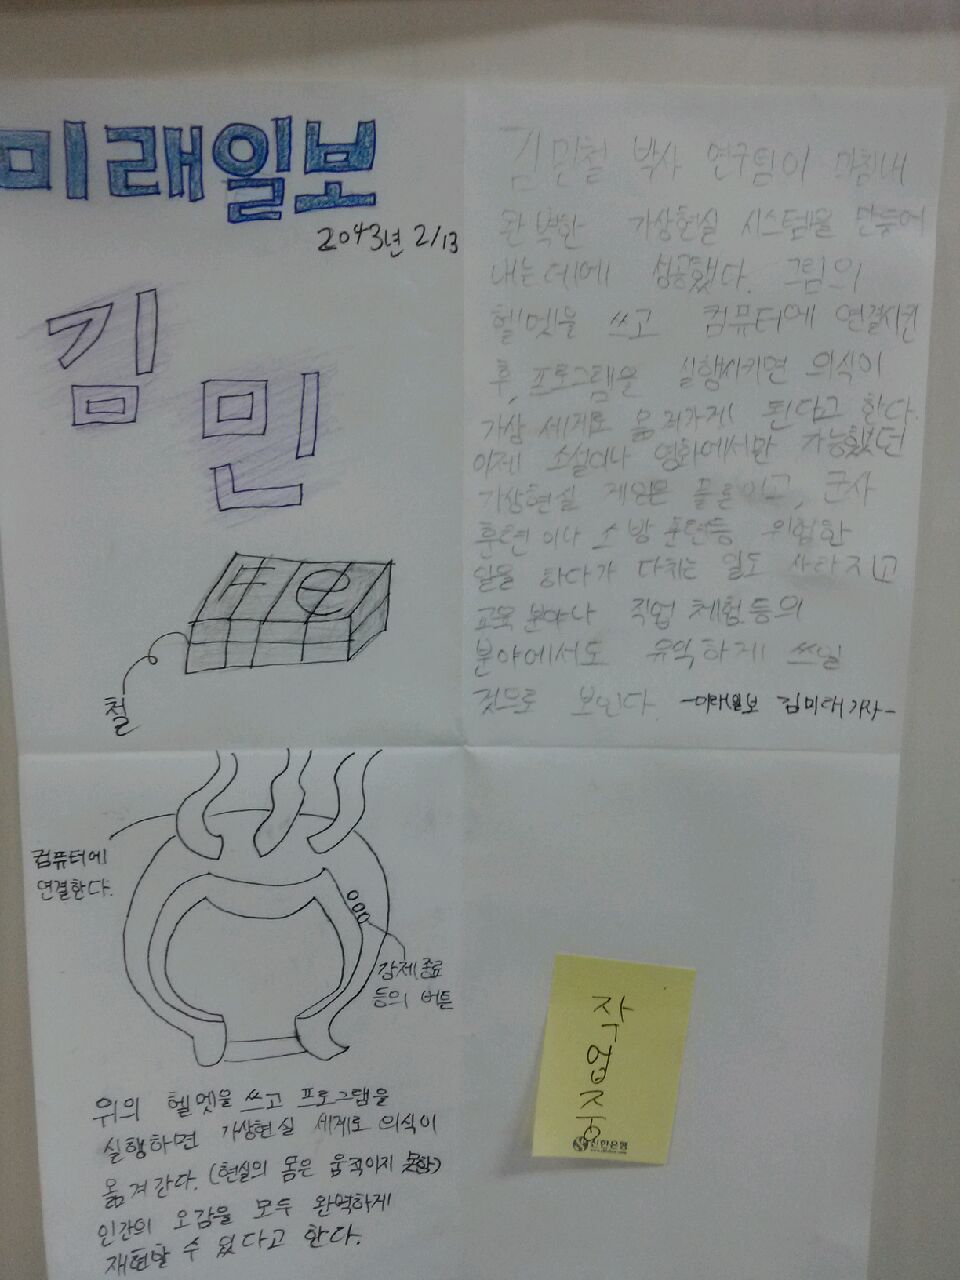 미래일보
2043년 2/13
김
민
철
김민철 박사 연구팀이 마침내
완벽한 가상현실 시스템을 만들어
내는데에 성공했다. 그림의
헬멧을 쓰고 컴퓨터에 연결시킨
후, 프로그램을 실행시키면 의식이
가상 세계로 옮겨가게 된다고 한다.
이제 소설이나 영화에서만 가능했던
가상현실 게임은 물론이고, 군사
훈련이나 소방훈련등 위험한
일을 하다가 다치는 일도 사라지고
교육분야나 직업 체험등의
분야에서도 유익하게 쓰일
것으로 보인다. -미래일보 김미래기자-
컴퓨터에
연결한다.
강제종료
등의 버튼
위의 헬멧을 쓰고 프로그램을
실행하면 가상현실 세계로 의식이
옮겨간다. (현실의 몸은 움직이지 못함)
인간의 오감을 모두 완벽하게
재현할 수 있다고 한다.
작업중
신한은행